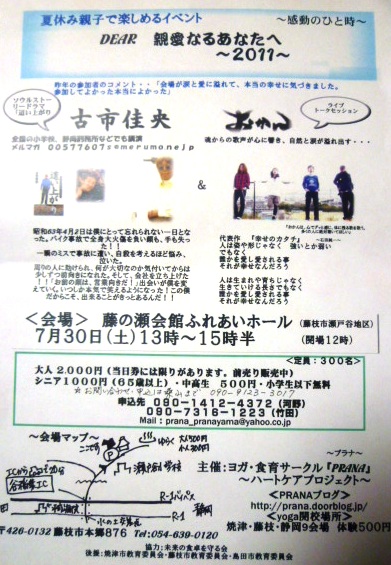 夏休み親子で楽しめるイベント
～感動のひと時～
DEAR 親愛なるあなたへ
～2011～
昨年の参加者のコメント・・「会場が涙と愛に溢れて、本当の幸せに気づきました。
参加してよかった本当によかった」
ソウルストーリードラマ
「這い上がり」
古市佳央
全国の小学校、静岡刑務所などでも講演
メルマガ 00577607s@merumo.ne.jp
ライブ
トークセッション
おかん
魂からの歌声が心に響き、自然と涙が溢れ出す・・・
&
昭和63年4月2日は僕にとって忘れられない一日となった。バイク事故で全身大火傷を負い顔も、手も失った！！
一瞬のミスで事故に遭い、自殺を考えるほど悩み、泣いた。
周りの人に助けられ、何が大切なのか気付いてからは少しずつ前向きになれた。そして、会社を立ち上げた！！「お前の顔は、営業向きだ！」出会いが僕を変えていく。いつしか本気で笑えるようになった！この僕だからこそ、出来ることがきっとあるんだ！！
代表作 『幸せのカタチ』
人は姿や形じゃなく 強いとか弱い
でもなく
誰かを愛し愛される事
それが幸せなんだろう
人は生まれや育ちじゃなく
生きていける長さでもなく
誰かを愛し愛される事
それが幸せなんだろう
＜会場＞ 藤の瀬会館ふれあいホール （藤枝市瀬戸谷地区）
7月30日（土）13時～15時半 （開場12時）
＜定員：300名＞
大人 2,000円（当日券には限りがあります。前売り販売中）
シニア1000円（65歳以上）・中高生 500円・小学生以下無料
090-9123-3017
申込先 090-1412-4372（河野）
090-7316-1223（竹田）
Mail：prana_pranayama@yahoo.co.jp
～会場マップ～
ここです
P
R-1バイパス
R-1
静岡
〒426-0132 藤枝市本郷876 Tel:054-639-0120
～プラナ～
主催：ヨガ・食育サークル『PRANA』
～ハートケアプロジェクト～
＜PRANAブログ＞
http://prana.doorblog.jp/
＜yoga関校場所＞
焼津・藤枝・静岡9会場 体験500円
協力：未来の食卓を守る会
後援：焼津市教育委員会・藤枝市教育委員会・島田市教育委員会